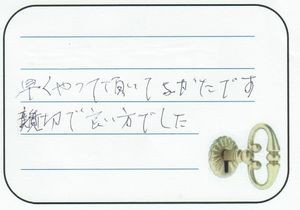 早くやって頂いてよかたです
親切で良い方でした